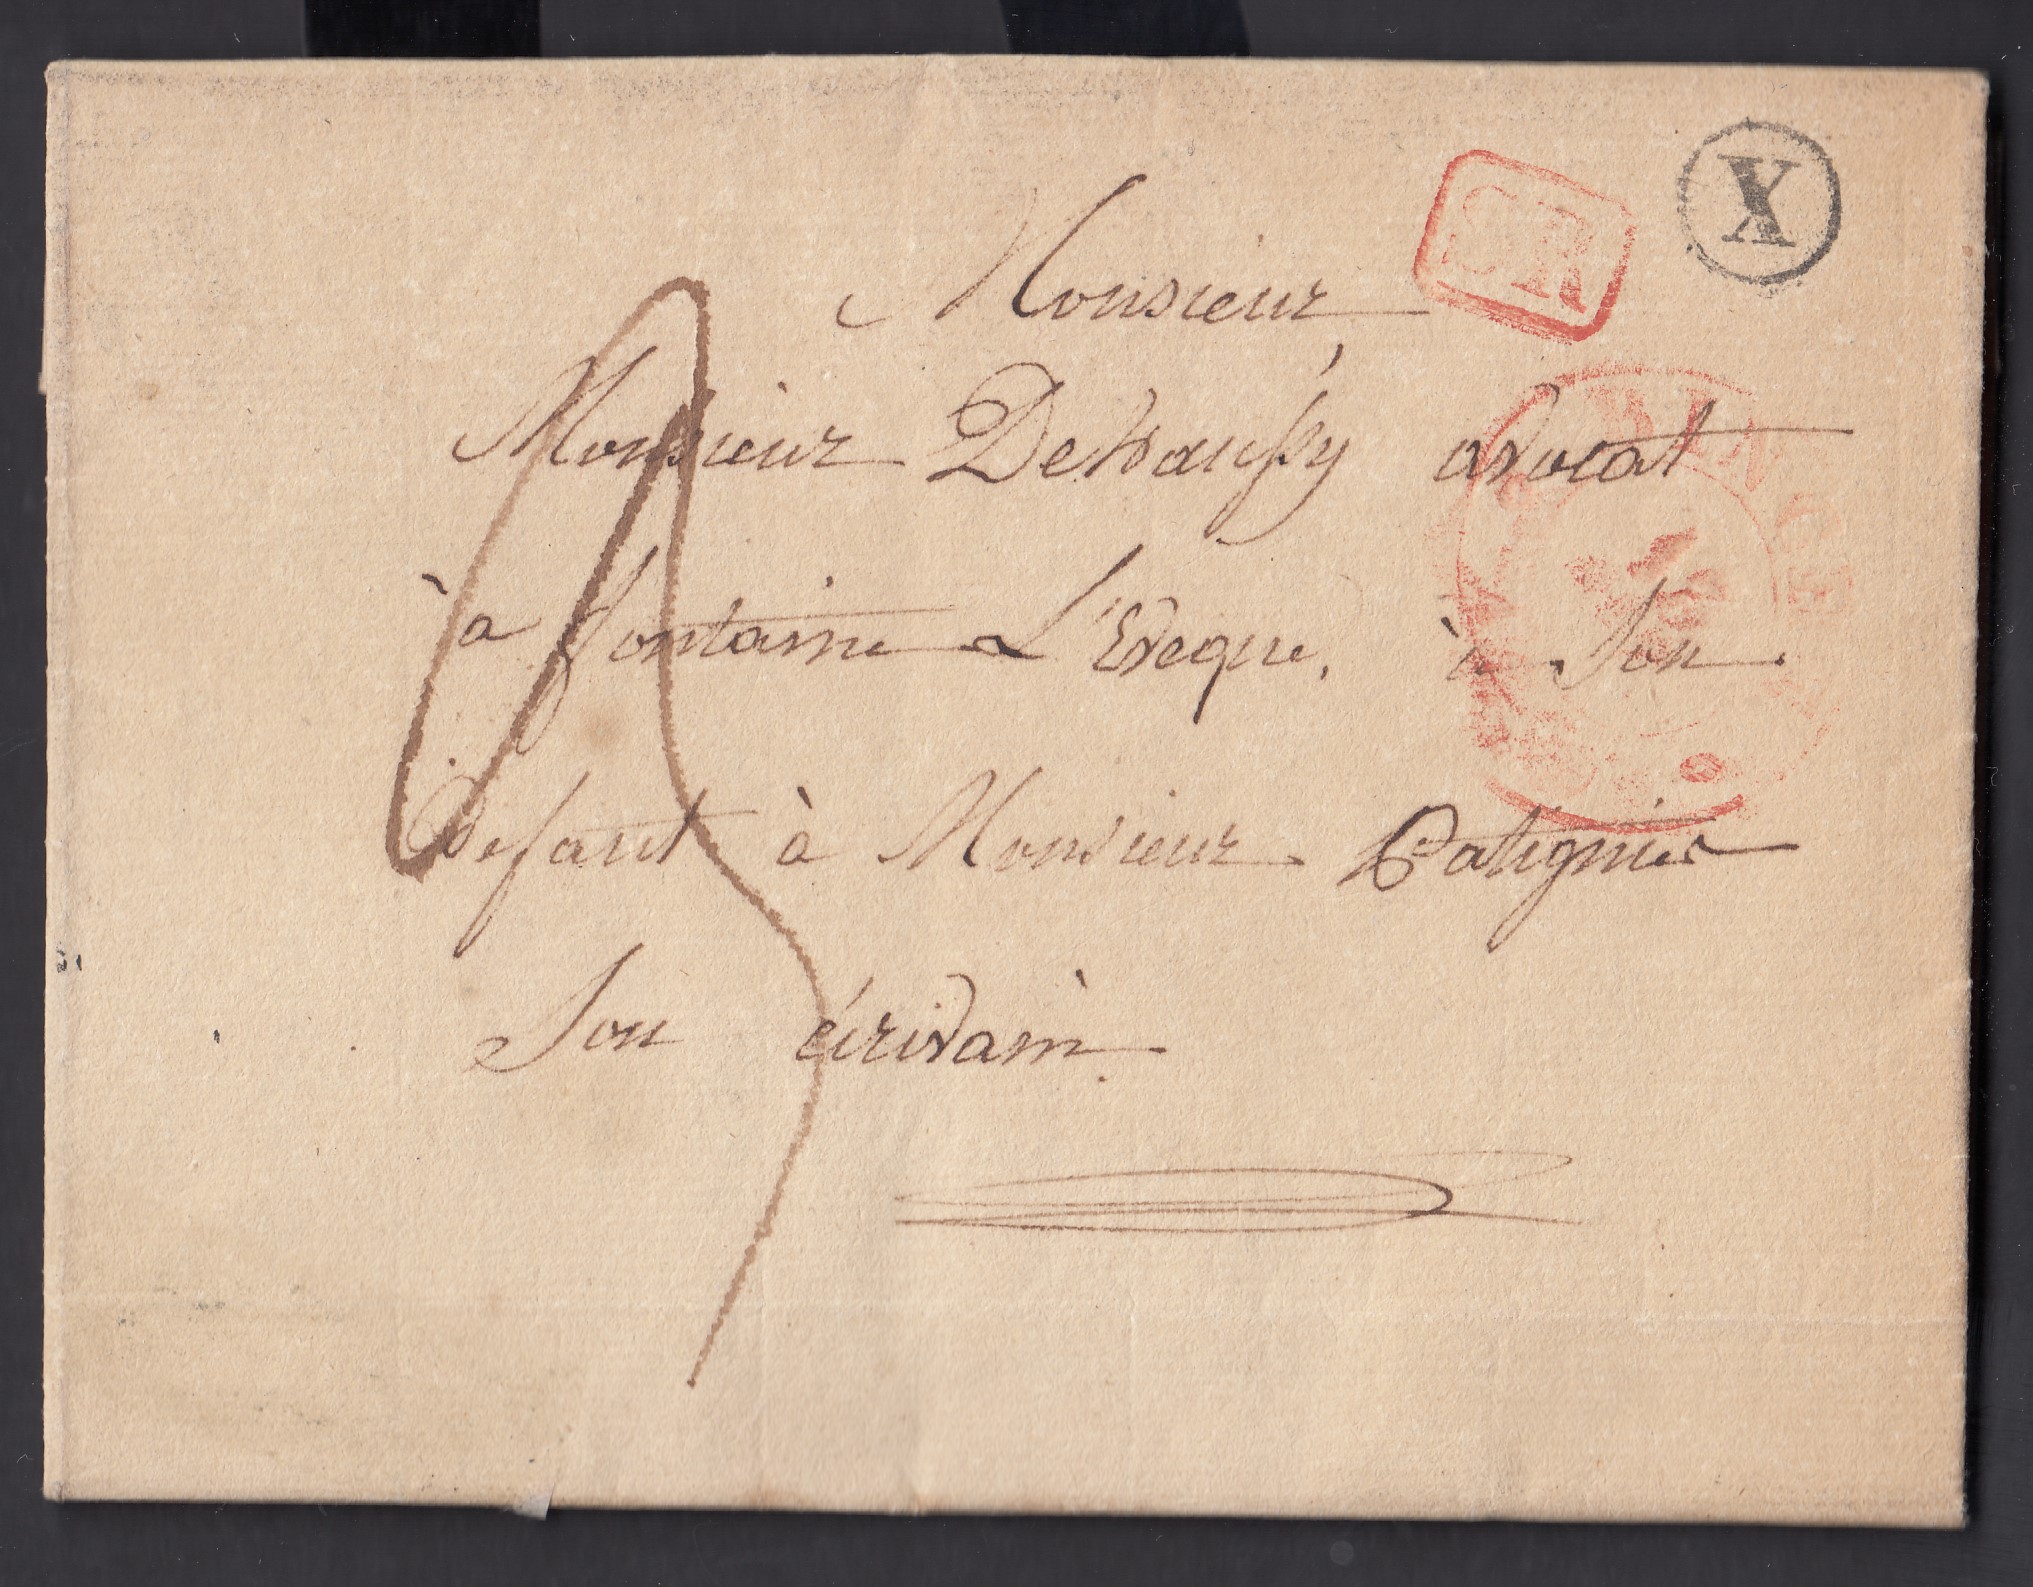 X
SR
Monsieur
Monsieur Dehaussy avocat
à fontaine L'Eveque, à Son
Defaut à Monsieur
Son écrivain